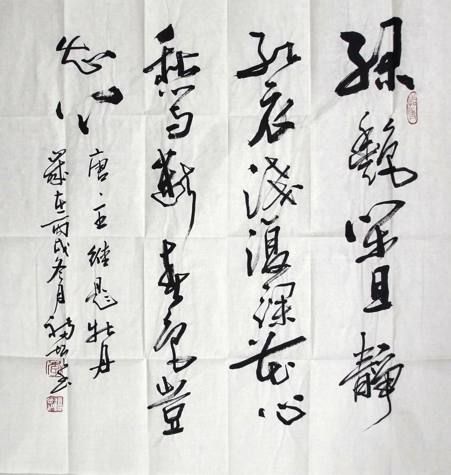 绿艳闲且静
红衣浅复深花心
愁欲断春色岂
知心
唐·王维题牡丹
岁在丙戌冬月福